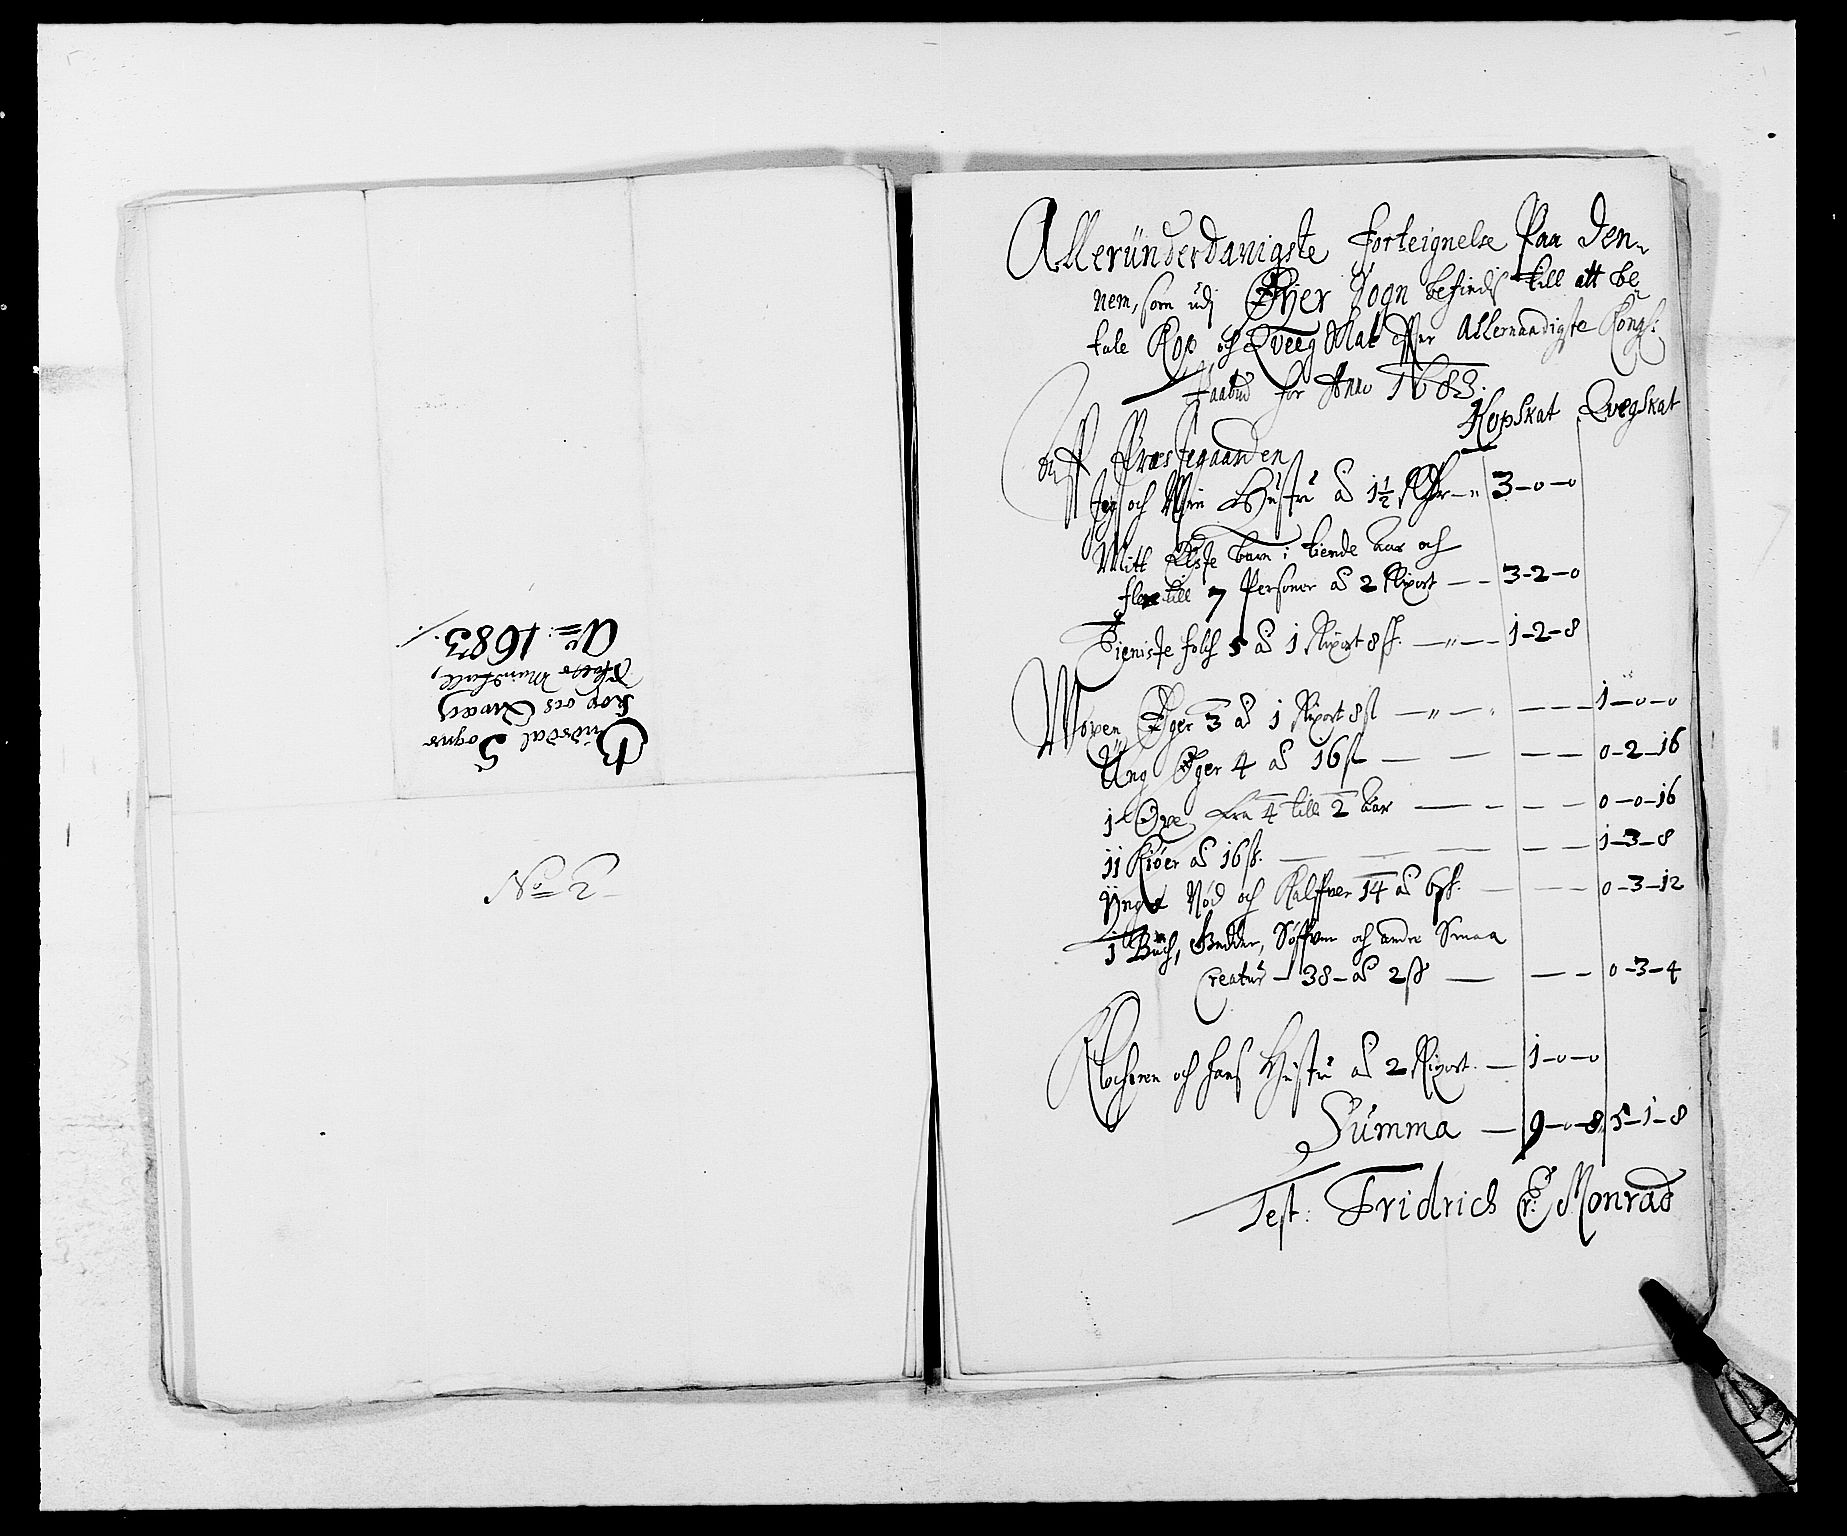 Gudsdal Sogns
Kop och Qvæg
Skatt Mandtall,
Ao: 1683.
No 2
Alleründerdanigste forteignelse Paa Den-
nem, som udj Øyer Sogn befindis till att be
tale Kop och Qveeg Skat effter Allernaadigste Kongl:
Paabud for Anno 1683.
Kopskat Qvegskat
Aff Præstegaarden
Jeg och Min Hustru ad 1½ Rdr — 3-0-0
Mitt Elste barn i tiende Aar och
flere till 7 Personer ad 2 Rixort — 3-2-0
Tieniste folch 5 ad 1 Rixort 8 ß. — 1-2-8
Woxen Øger 3 ad 1 Rixort 8 ß — 1-0-0
Ung Øger 4 ad 16 ß — 0-2-16
1 Oxe fra 4 till 2 Aar — 0-0-16
11 Kiøer ad 16 ß. — 1-3-8
Yngre Nød och Kalffver 14 ad 6 ß. — 0-3-12
1 Buch, Gedder, Søffver och andre Smaa
Creatur — 38 — ad 2 ß — 0-3-4
Klocheren och hans Hustru ad 2 Rixort. — 1-0-0
Summa — 9-0-8 5-1-8
Test: Fridrich Er: Monrad